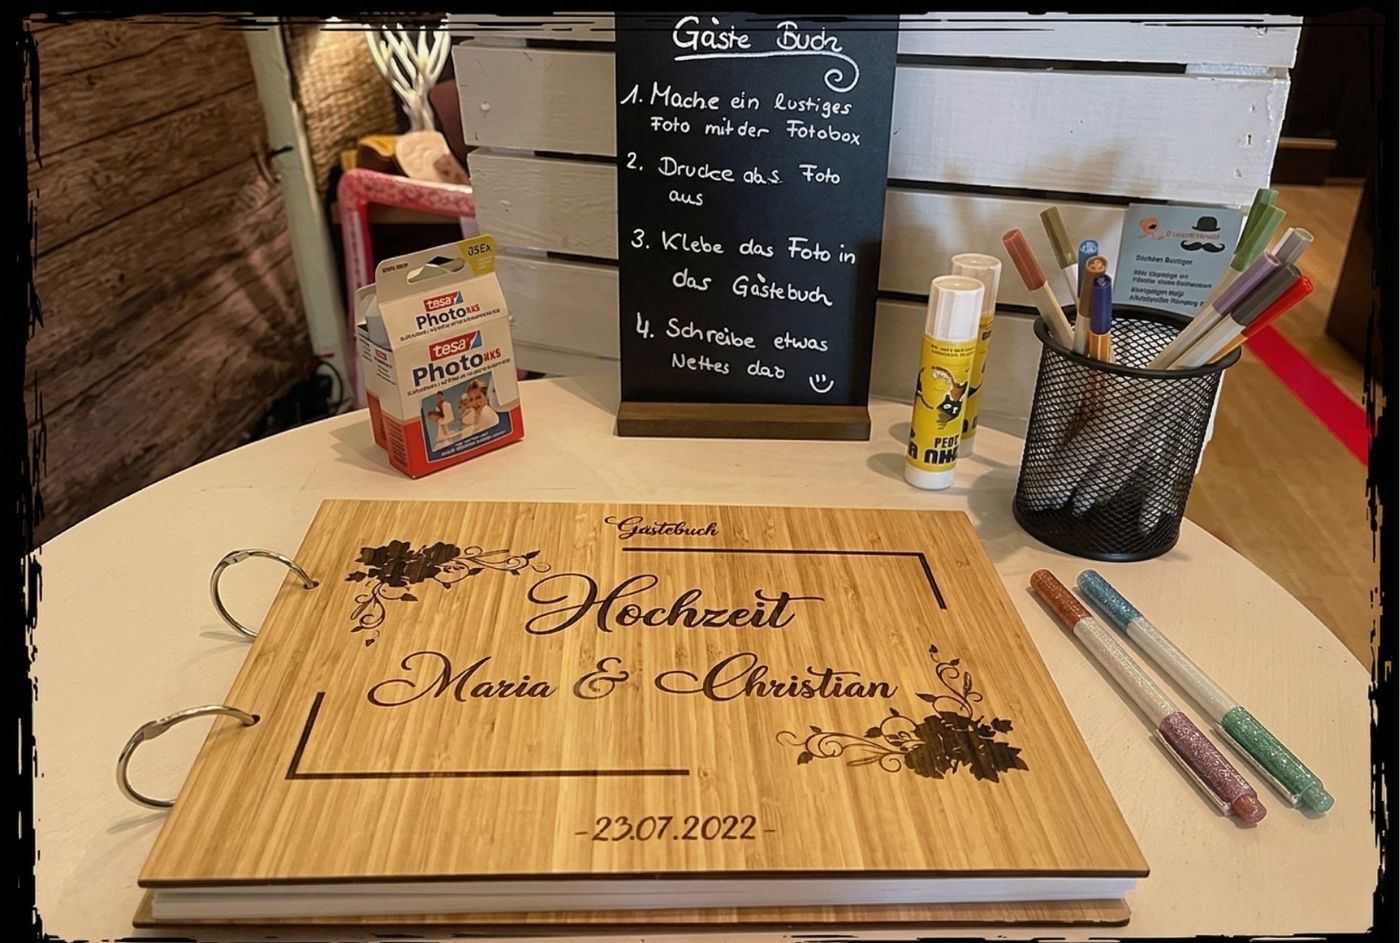 Gäste Buch
1. Mache ein lustiges
Foto mit der Fotobox
2. Drucke das Foto
aus
3. Klebe das Foto in
das Gästebuch
4. Schreibe etwas
Nettes dazu
tesa
Photo
tesa
Photo
Gästebuch
Hochzeit
Maria & Christian
-23.07.2022-